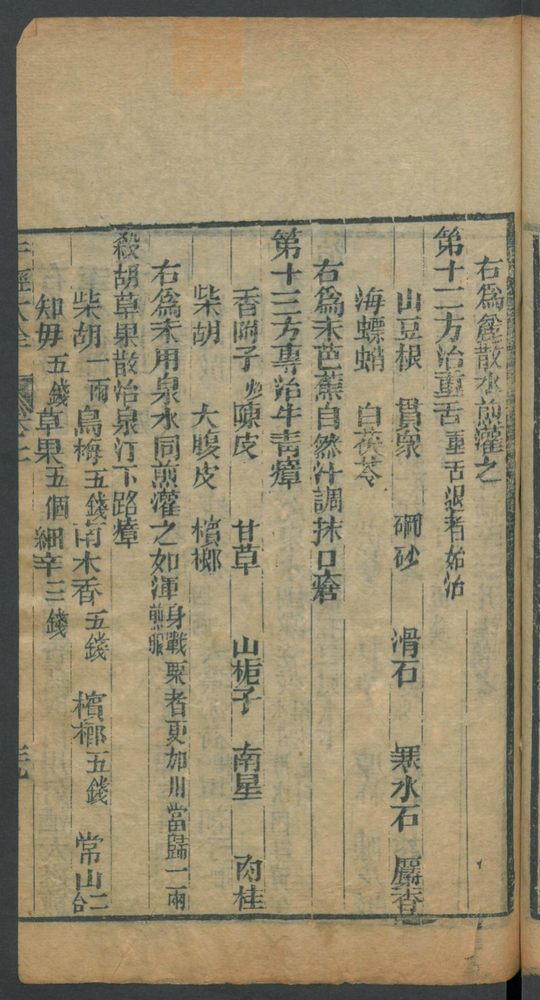 右爲麄散水煎灌之
第十二方治重舌重舌退者始治
山豆根 貫衆 硇砂 滑石 寒水石 麝香
海螵蛸 白茯苓
右爲末芭蕉自然汁調抹口瘡
第十三方專治牛青瘴
香附子炒 陳皮 甘草 山梔子 南星 肉桂
柴胡 大腹皮 檳榔
右爲末用泉水同煎灌之如渾身戰栗者更加川當歸二兩煎服
殺胡草果散治泉汀下路瘴
柴胡一兩烏梅五錢南木香五錢 檳榔五錢 常山二
知毋五錢草果五個細辛三錢
牛經大全